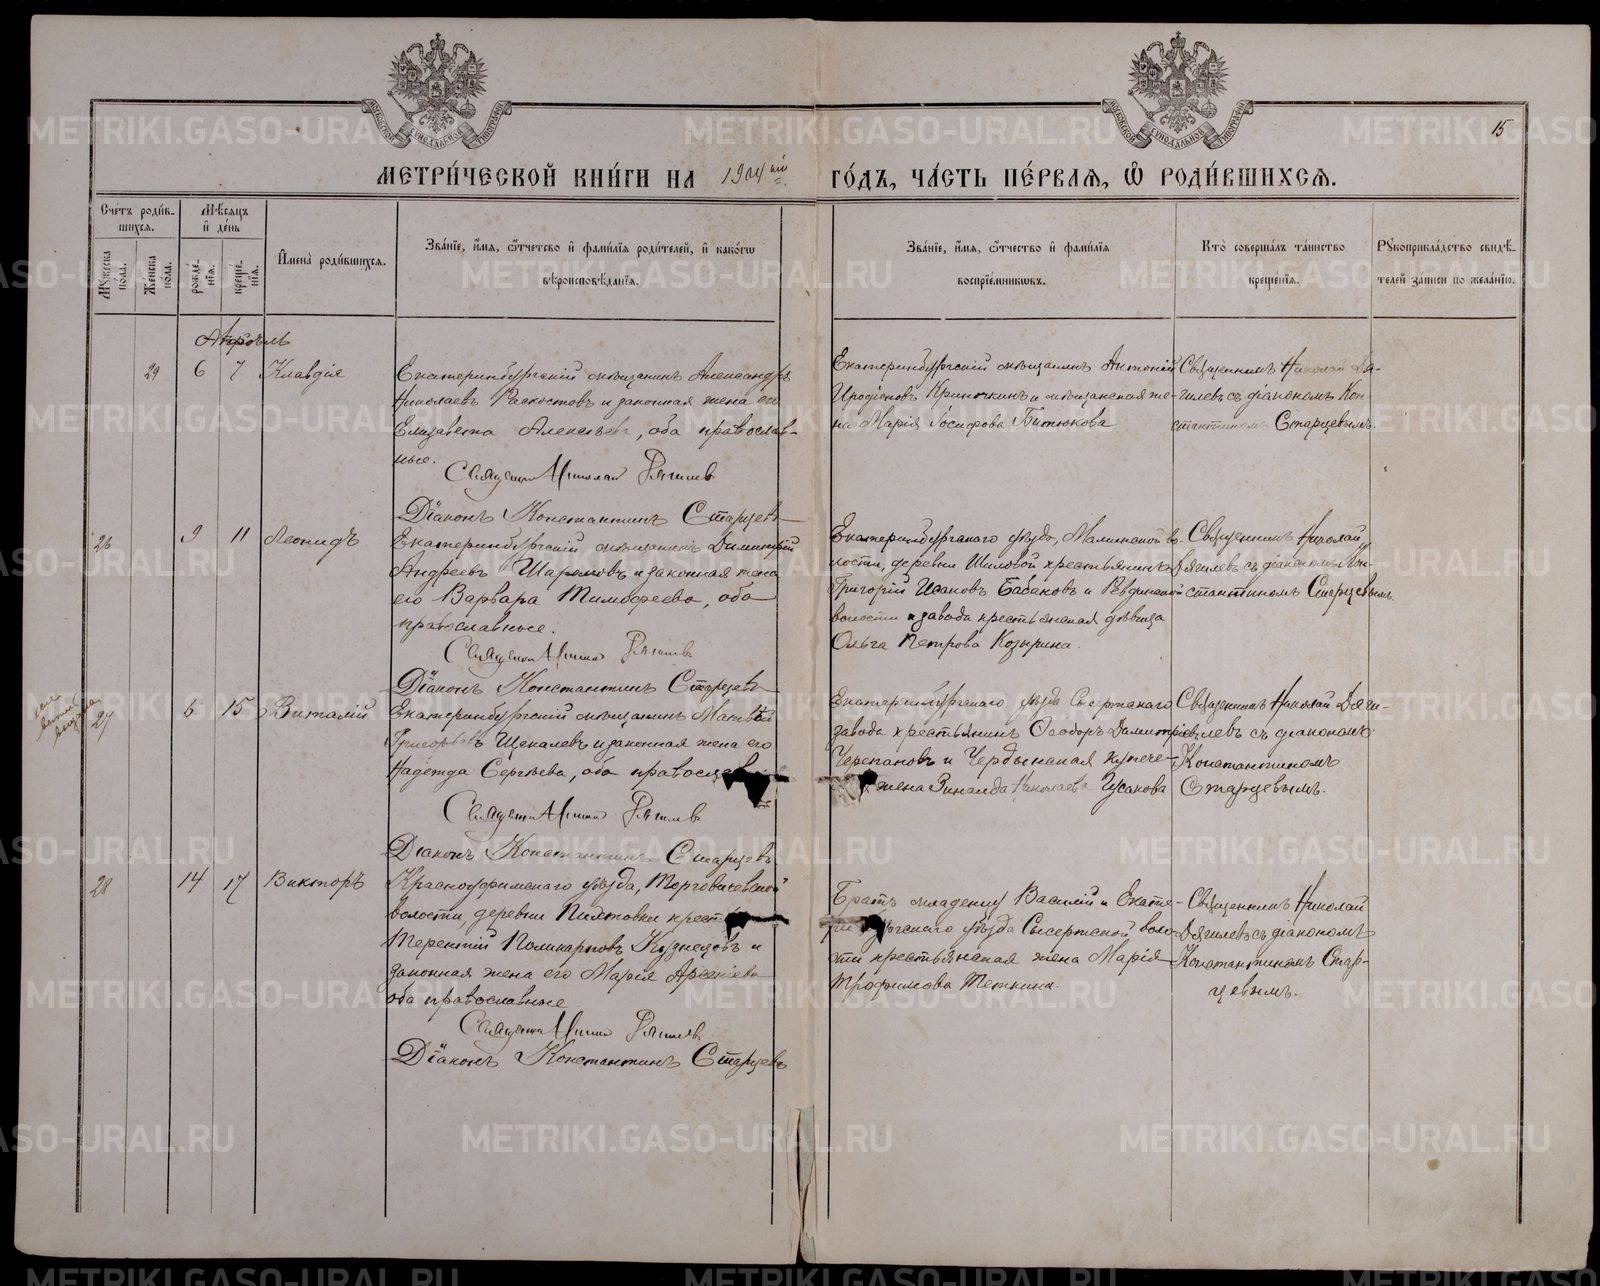 15
МЕТРИ́ЧЕСКОЙ КНИ́ГИ НА 1904 ый ГО́ДЪ, ЧА́СТЬ ПЕ́РВАЯ, Ѡ РОДИ́ВШИХСЯ.
Сче́тъ роди́вшихся.
Мꙋ́жеска по́ла.
Же́нска по́ла.
Мѣ́сяцъ и де́нь
рожде́нія.
креще́нія.
И́мена̀ роди́вшихся.
Зва́ніе, и́мя, ѻ́тчество и фами́лія роди́телей, и како́гѡ
вѣроисповѣ́данія.
Зва́ніе, и́мя, ѻ́тчество и фами́лія
воспріе́мникѡвъ.
Кто̀ соверша́лъ та́инство
креще́нія.
Рꙋкоприкла́дство свидѣ́-
телей за́писи по жела́нію.
Апрѣль
29 6 7 Клавдія
Екатеринбургскій мѣщанинъ Александръ
Николаевъ Раскостовъ и законная жена его
Елизавета Алексѣева, оба православ-
ные.
Священ Николай Дягилевъ
Діаконъ Константинъ Старцевъ
Екатеринбургскій мѣщанинъ Антоній
Иродіоновъ и мѣщанская же-
на Марія Іосифова Битюкова
Священникъ Николай Дя-
гилевъ съ діакономъ Кон-
стантиномъ Старцевымъ.
26 9 11 Леонидъ
Екатеринбургскій мѣщанинъ Димитрій
Андреевъ Шарамовъ и законная жена
его Варвара Тимофеева, оба
православные.
Священ Дягилевъ
Діаконъ Константинъ Старцевъ
Екатеринбургскаго уѣзда, Маминской во-
лости, деревни Шиловой крестьянинъ
Григорій Исаковъ Бабаковъ и Ревдинской
волости и завода крестьянская дѣвица
Ольга Петрова Козырина.
Священникъ Николай
Дягилевъ съ діакономъ Кон-
стантиномъ Старцевымъ.
27 6 15 Виталій
Екатеринбургскій мѣщанинъ Матвѣй
Григорьевъ Щекалевъ и законная жена его
Надежда Сергѣева, оба православ
Священ Дягилевъ
Діаконъ Константинъ Старцевъ
Екатеринбургскаго уѣзда Сысертскаго
завода крестьянинъ Ѳеодоръ Димитріевъ
Черепановъ и Чердынская купече-
жена Зинаида Николаева Гусакова
Священникъ Николай Дяги-
левъ съ діакономъ
Константиномъ
Старцевымъ.
28 14 17 Викторъ
Красноуфимскаго уѣзда, Торговижской
волости, деревни Пихтовки крест
Терентій Поликарповъ Кузнецовъ и
законная жена его Марія Арсеніева
оба православные
Священ Дягилевъ
Діаконъ Константинъ Старцевъ
Братъ младенца Василій и Екате-
ринбургскаго уѣзда Сысертской воло-
сти крестьянская жена Марія
Трофимова Теткина.
Священникъ Николай
Дягилевъ съ діакономъ
Константиномъ Стар-
цевымъ.
METRIKI.GASO-URAL.RU